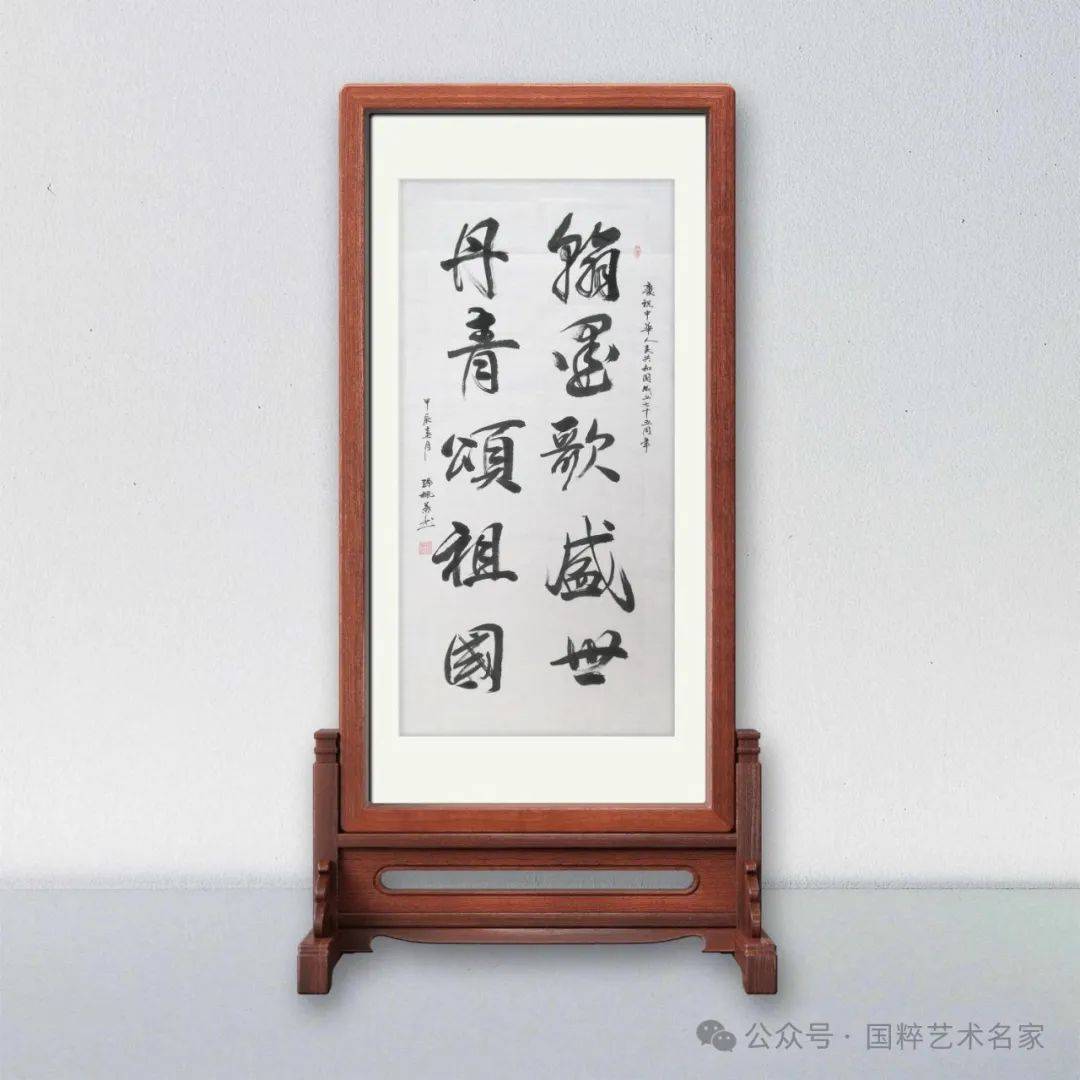 慶祝中华人民共和国成立七十五周年
翰墨歌盛世
丹青頌祖國
甲辰春月
公众号·国粹艺术名家